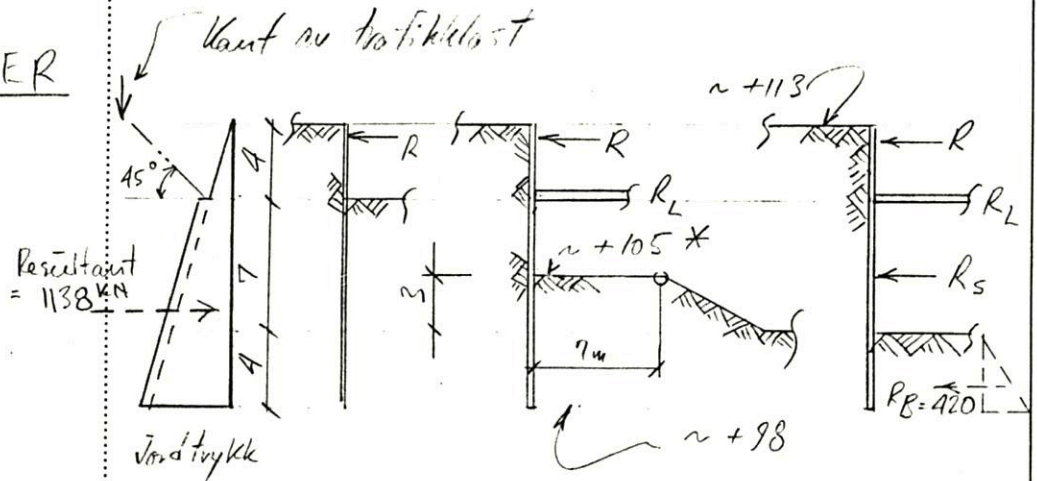 ER
Kant av trafikklast
45°
Resultant
= 1138 KN
Jordtrykk
4
7
4
R
R
R_L
~ +105 *
3
7m
~ +98
~ +113
R
R_L
R_S
R_B = 420